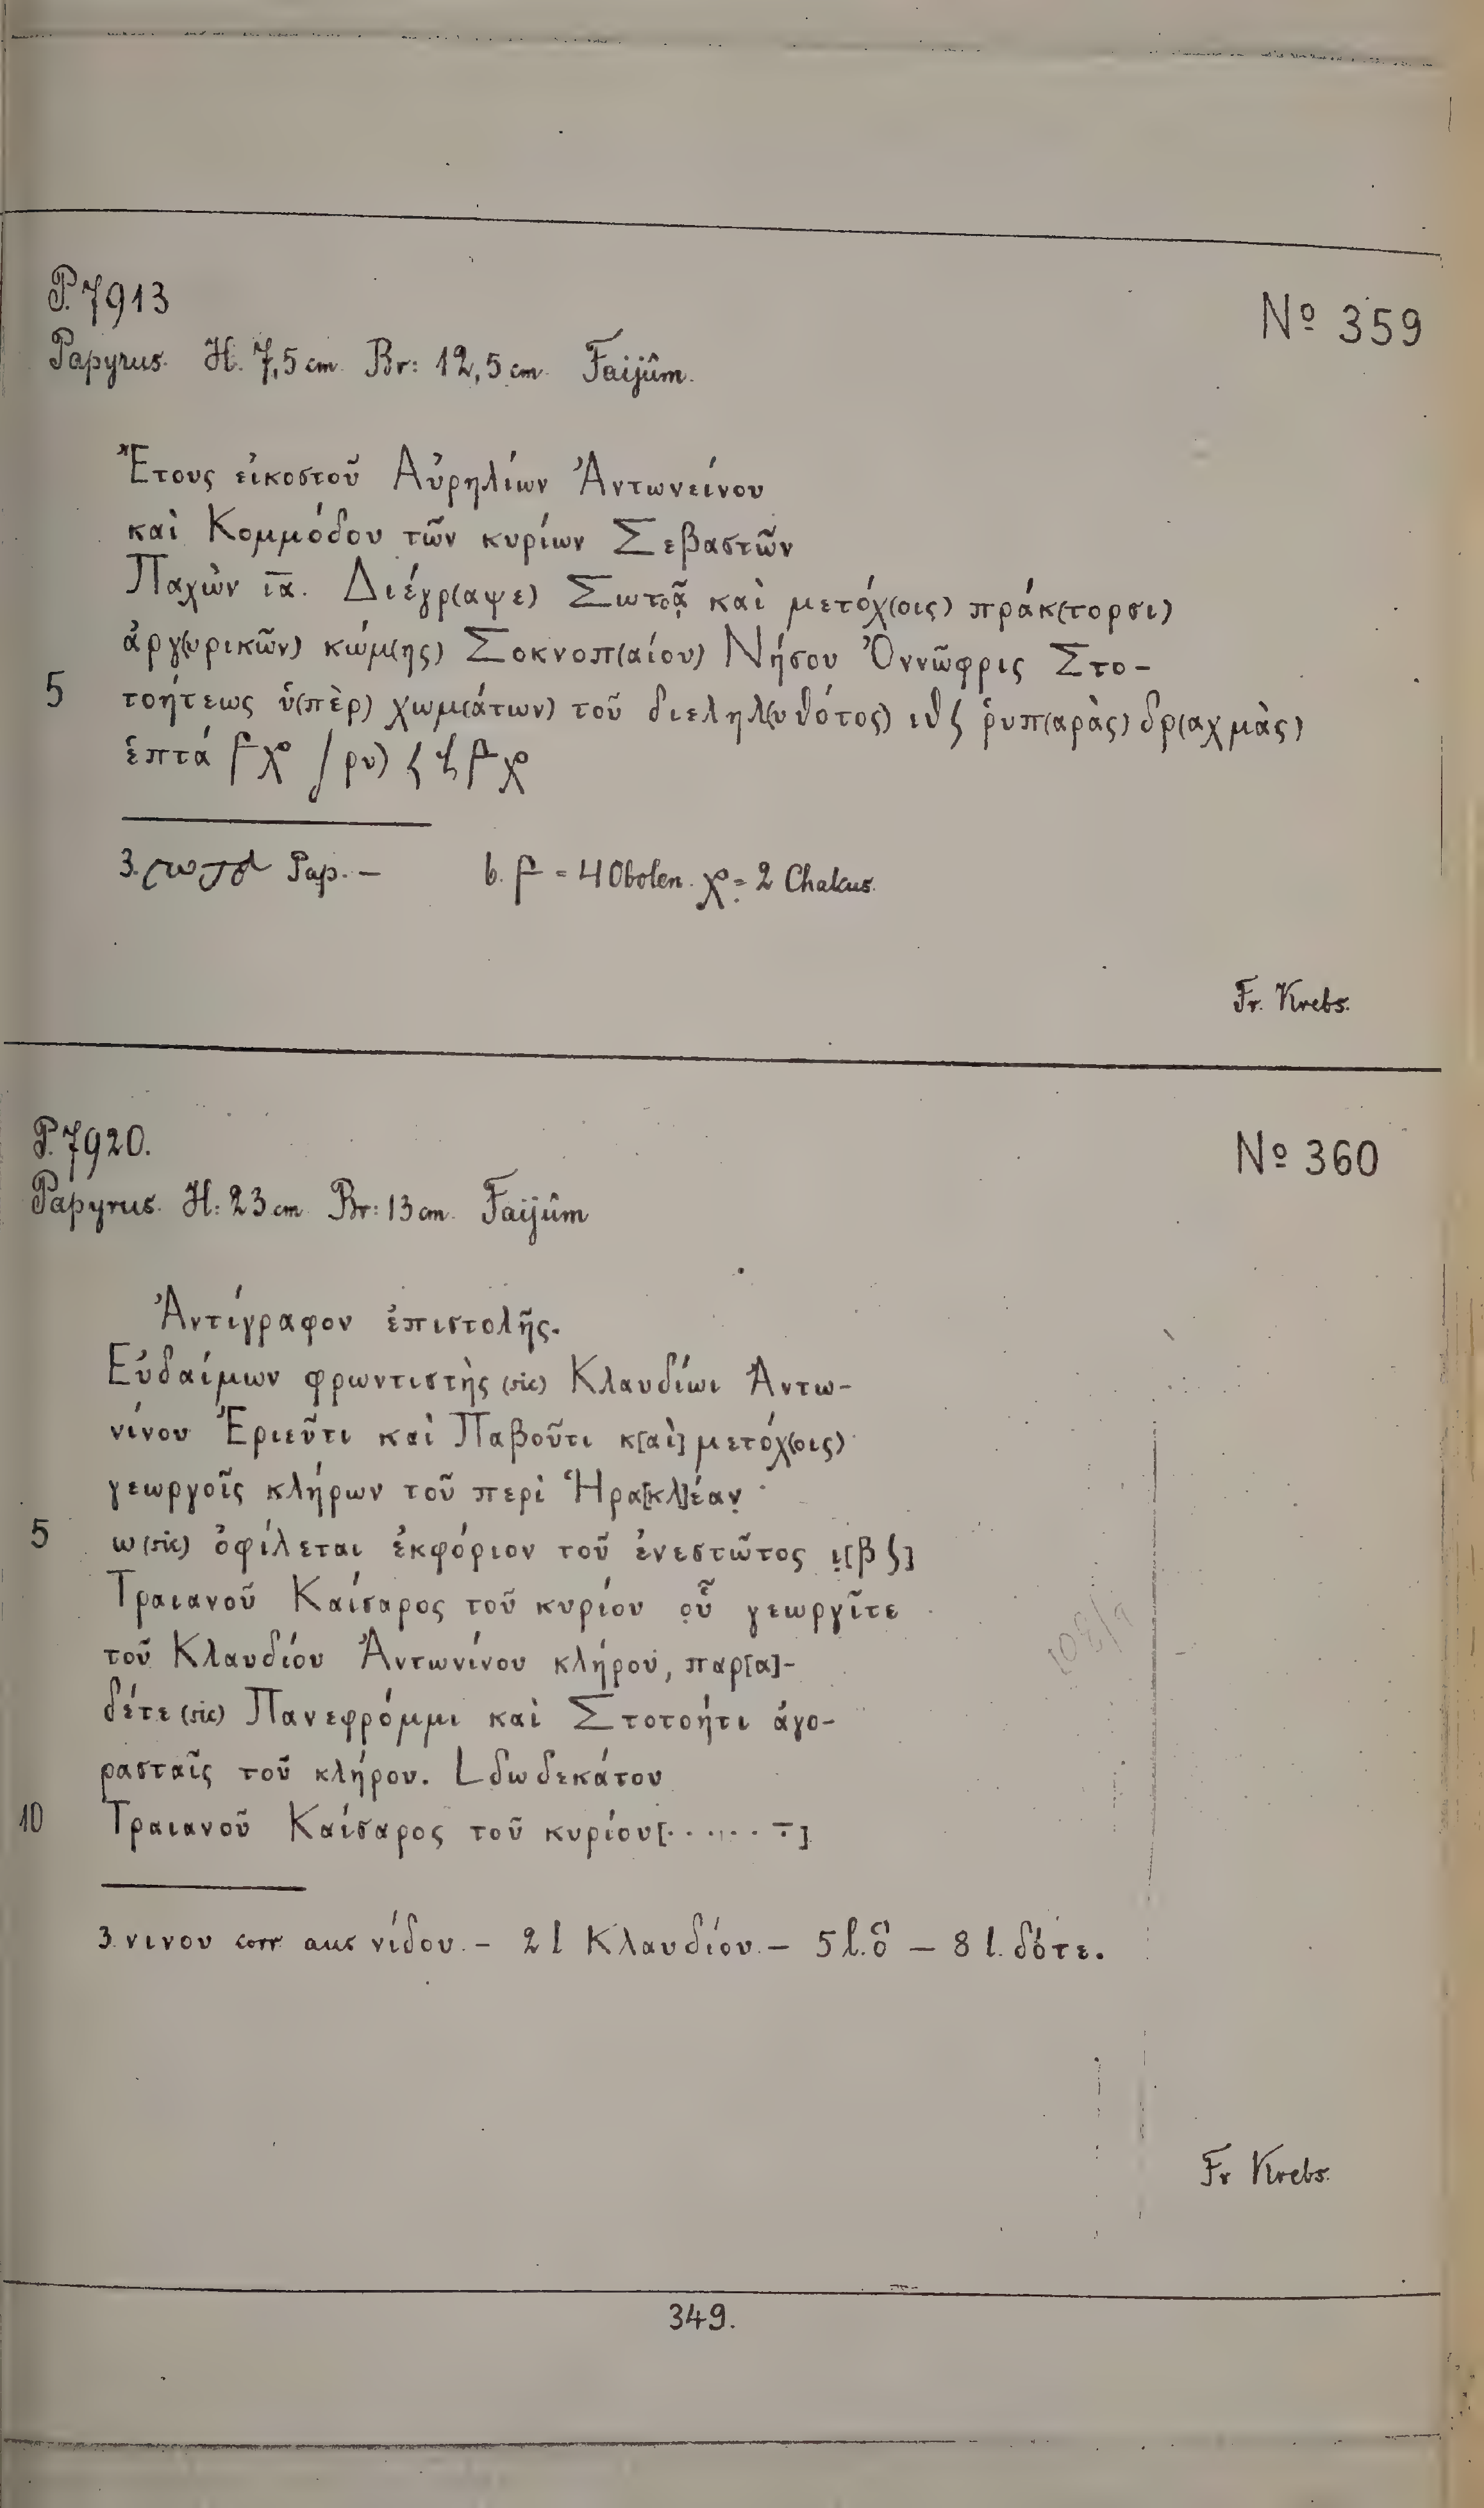 P. 7913
Nº 359
Papyrus. H. 7,5 cm. Br: 12,5 cm. Faijûm.
Ἔτους εἰκοστοῦ Αὐρηλίων Ἀντωνείνου
καὶ Κομμόδου τῶν κυρίων Σεβαστῶν
Παχὼν ι̅α̅. Διέγρ(αψε) Σωτᾷ καὶ μετόχ(οις) πράκ(τορσι)
ἀργ(υρικῶν) κώμ(ης) Σοκνοπ(αίου) Νήσου Ὀννῶφρις Στο-
5 τοήτεως ὑ(πὲρ) χωμ(άτων) τοῦ διεληλ(υθότος) ιθ ϛ ῥυπ(αρὰς) δρ(αχμὰς)
ἑπτά
3. Pap. — 6. = 4 Obolen. = 2 Chalkus.
Fr. Krebs.
P. 7920.
Nº 360
Papyrus. H: 23 cm. Br: 13 cm. Faijûm
Ἀντίγραφον ἐπιστολῆς.
Εὐδαίμων φρωντιστὴς (sic) Κλαυδίωι Ἀντω-
νίνου Ἑριεῦτι καὶ Παβοῦτι κ[αὶ] μετόχ(οις)
γεωργοῖς κλήρων τοῦ περὶ Ἡρα[κλ]έαν̣
5 ω (sic) ὀφίλεται ἐκφόριον τοῦ ἐνεστῶτος ι̣[β ϛ]
Τραιανοῦ Καίσαρος τοῦ κυρίου ο̣ὗ γεωργῖτε
τοῦ Κλαυδίου Ἀντωνίνου κλήρου, παρ[α]-
δέτε (sic) Πανεφρόμμι καὶ Στοτοήτι ἀγο-
ρασταῖς τοῦ κλήρου. L δωδεκάτου
10 Τραιανοῦ Καίσαρος τοῦ κυρίου [. . . . . . . –]
3. νινου corr. aus νίδου. — 2 l Κλαυδίου. — 5 l. ὃ — 8 l. δότε.
Fr Krebs.
349.